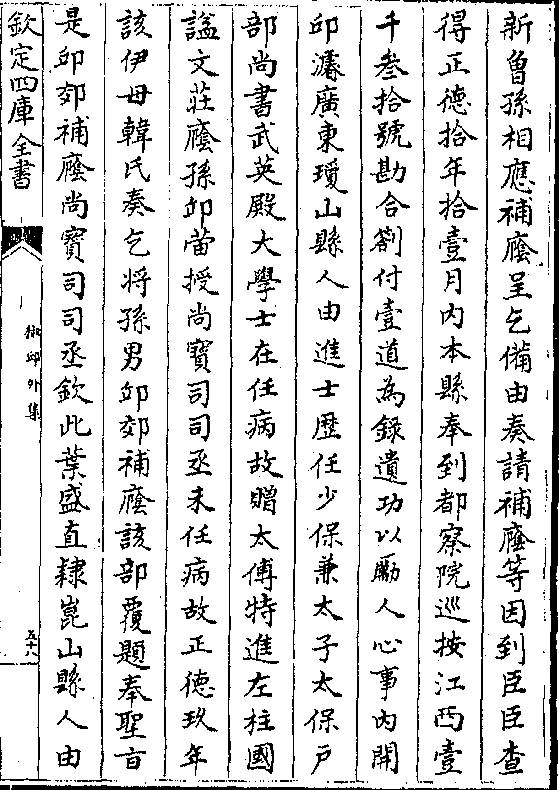 新曾孫相應補廕呈乞備由奏請補廕等因到臣臣查
得正德拾年拾壹月內本縣奉到都察院巡按江西壹
千叁拾號勘合劄付壹道為錄遺功以勵人心事內開
邱濬廣東瓊山縣人由進士歴任少保兼太子太保戶
部尚書武英殿大學士在任病故贈太傅特進左柱國
諡文莊廕孫邱𡶴授尚寶司司丞未任病故正德玖年
該伊母韓氏奏乞將孫男邱郊補廕該部覆題奉聖旨
是邱郊補廕尚寶司司丞欽此葉盛直隸崑山縣人由
欽定四庫全書
椒邱外集
五十八